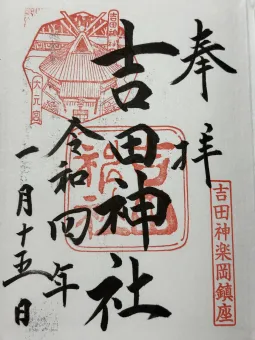 奉拝
吉田神社
令和四年
一月十五日
吉田神楽岡鎮座
大元宮